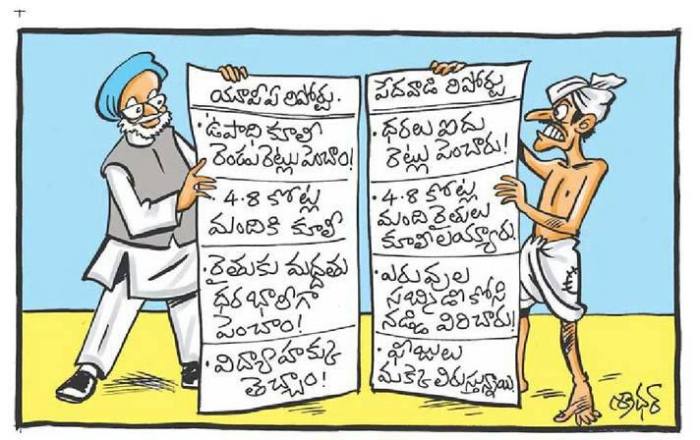 యూపీఏ రిపోర్టు.
• ఉపాధి కూలీ
రెండు రెట్లు పెంచాం!
• 4.8 కోట్ల
మందికి కూలీ
• రైతుకు మద్దతు
ధర భారీగా
పెంచాం!
• విద్యాహక్కు
తెచ్చాం!
పేదవాడి రిపోర్టు
• ధరలు ఐదు
రెట్లు పెంచారు!
• 4.8 కోట్ల
మంది రైతులు
కూలీలయ్యారు.
• ఎరువుల
సబ్సిడీ కోసి
నడ్డి విరిచారు!
• ఫీజులు
మక్కెలిరుస్తున్నాయి!
శ్రీధర్